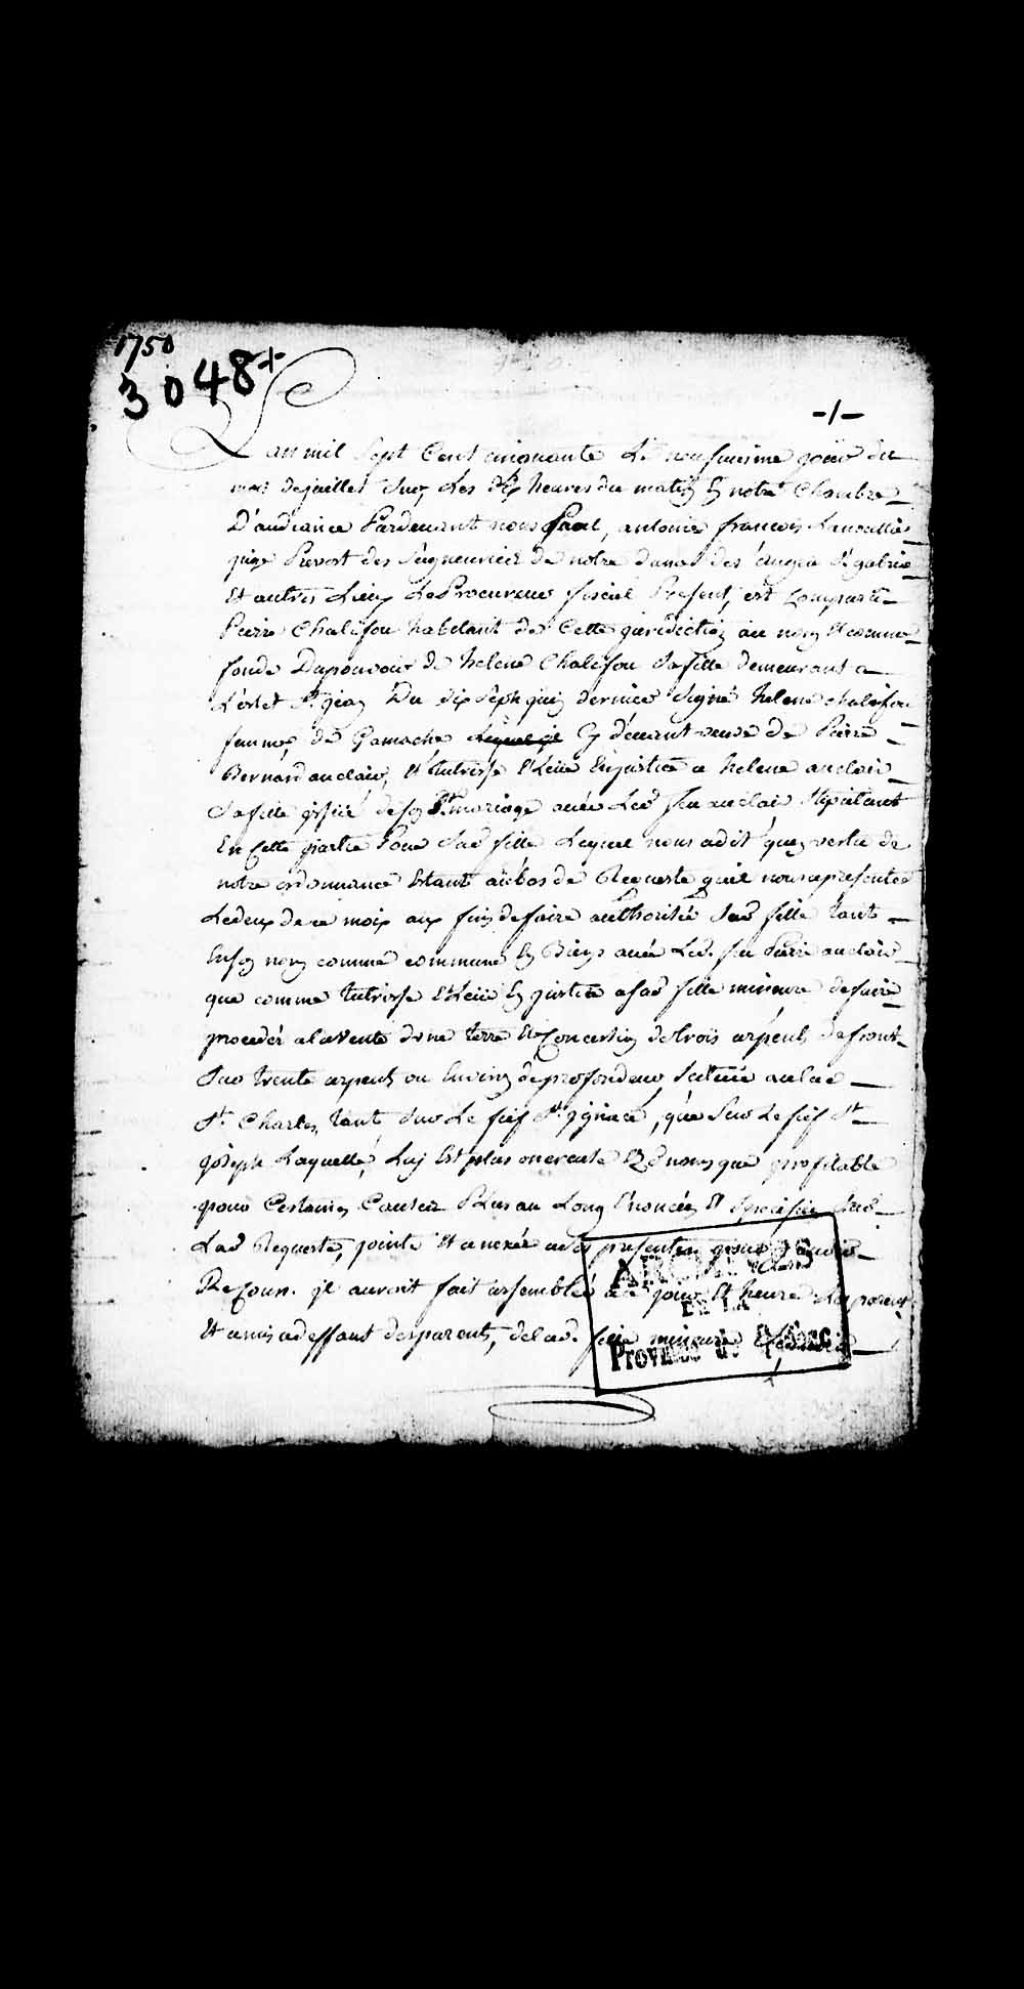 1750
3048+
-1-
L'an mil Sept Cent cinquante Le neufuiesme jour du
mois de juillet Sur Les dix heures du matin En notre Chambre
D'audiance Pardeuant nous Paul, antoine francois Lanoullier
juge Prevost des Seigneuries de notre dame des anges St gabriel
Et autres Lieux Le Procureur fiscal Present, est Comparu
Pierre Chalifou habitant de Cette juridiction au nom Et comme
fondé Dupouvoir de helene Chalifou Sa fille demeurant a
L'islet St jean Du dix Sept juin dernier Signé helene chalifou
femme de Gamache Cy deuant veuve de Pierre
Bernard auclair, Et tutrisse Eleüe Enjustice a helene auclair
Sa fille issüe de son mariage auec Led feu auclair Stipulant
En Cette partie Pour Sad fille Lequel nous a dit qu'en vertu de
notre ordonnance Estant au bas de Requeste quil nous a presentée
Le deux de ce mois aux fins de faire authorisée Sad fille tant
En son nom comme commune En Biens auec Led. feu Pierre auclair
que comme tutrisse Eleüe En justice a Sad fille mineure de faire
proceder a la vente d'une terre Et Concession de trois arpents de front
Sur trente arpents ou Environ de profondeur Scituée au lac
St. Charles, tant Sur Le fief St. ignace, que Sur Le fief St
joseph Laquelle, Luy Est plus onereuse que profitable
pour Certaines Causes Plus au Long Enoncées Et Specifiées
Lad Requeste, jointe Et anexée aux presentes pour y auoir
Recours. il auroit fait assembler a ce jour Et heure Les parents
Et amis a deffaut de parents, de lad. fille mineure
ARCHIVES
DE LA
Province de Québec